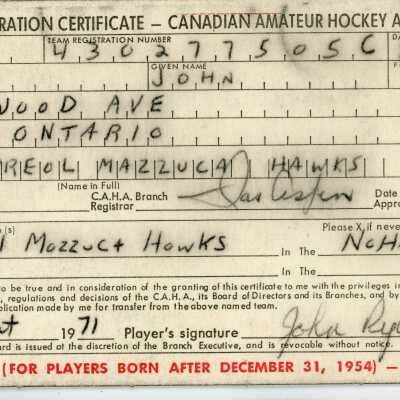 RATION CERTIFICATE – CANADIAN AMATEUR HOCKEY A
TEAM REGISTRATION NUMBER
430277505C
DA
GIVEN NAME
JOHN
WOOD AVE
ONTARIO
REOL MAZZUCA HAWKS
(Name in Full)
C.A.H.A. Branch
Registrar
Date
Appro
(s)
Please X, if never
Mozzuca Hawks
In The
NOHA
In The
to be true and in consideration of the granting of this certificate to me with the privileges in
, regulations and decisions of the C.A.H.A., its Board of Directors and its Branches, and by
plication made by me for transfer from the above named team.
1971 Player's signature John
ard is issued at the discretion of the Branch Executive, and is revocable without notice.
(FOR PLAYERS BORN AFTER DECEMBER 31, 1954) –